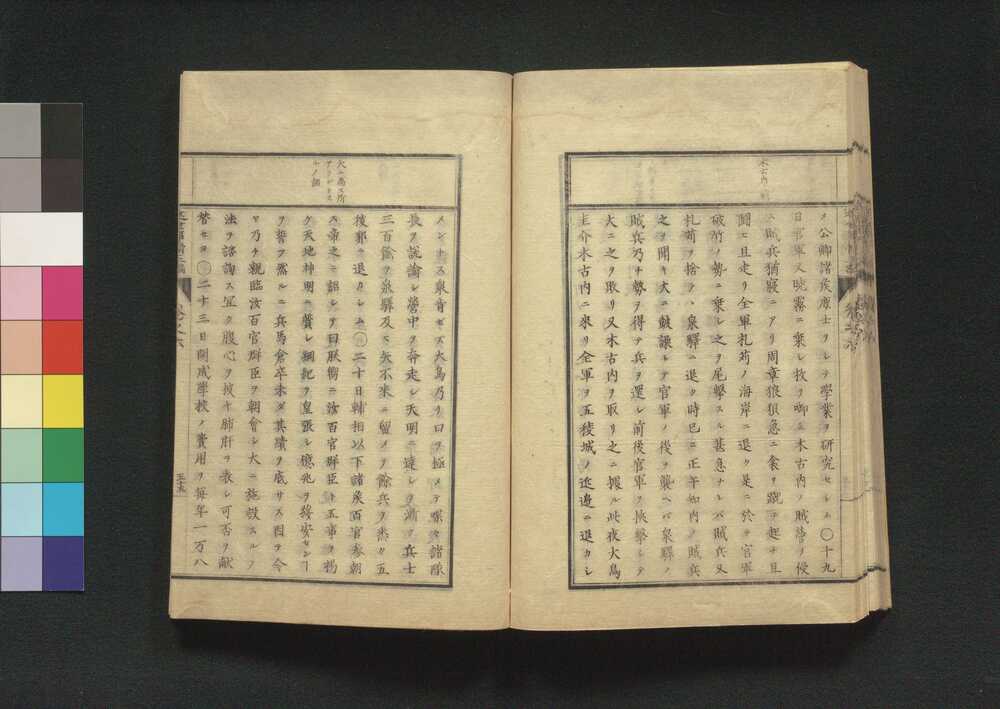 メ公卿諸侯庶士ヲシテ學業ヲ研究セシム〇十九
日官軍又曉霧ニ乗シ枚ヲ啣ミ木古内ノ賊營ヲ侵
ス賊兵猶寢ニアリ周章狼狽急ニ衾ヲ蹴テ起チ且
鬪ヒ且走リ全軍札苅ノ海岸ニ退ク是ニ於テ官軍
破竹ノ勢ニ乗シ之ヲ尾撃スル甚急ナレバ賊兵又
札苅ヲ捨テハ泉驛ニ退ク時已ニ正午知内ノ賊兵
之ヲ聞キ大ニ皷譟シテ官軍ノ後ヲ襲ヘバ泉驛ノ
賊兵乃チ勢ヲ得テ兵ヲ還シ前後官軍ヲ挾撃シテ
大ニ之ヲ敗リ又木古内ヲ取リ之ニ據ル此夜大鳥
圭介木古内ニ來リ全軍ヲ五稜城ノ近邊ニ退カシ
メントス衆肯セズ大鳥乃リ口ヲ極メテ喋々諸隊
長ヲ説諭シ營中ヲ奔走シ天明ニ達シテ漸ク兵士
三百餘ヲ泉驛及ヒ矢不來ニ留メ餘兵ヲ悉ク五
稜郭ニ退クレム〇二十日輔相以下諸矦百官参朝
ス帝之ニ詔シテ曰朕嚮ニ汝百官群臣ト五事ヲ掲
ケ天地神明ニ質シ綱紀ヲ皇張シ億兆ヲ綏安センヿ
ヲ誓フ然ルニ兵馬倉卒未タ其蹟ヲ底サス因テ今
ヤ乃チ親臨汝百官群臣ヲ朝會シ大ニ施設スルノ
法ヲ諮詢ス冝ク腹心ヲ披キ肺肝ヲ表シ可否ヲ献
替セヨ〇二十三日開成學校ノ費用ヲ毎年一万八